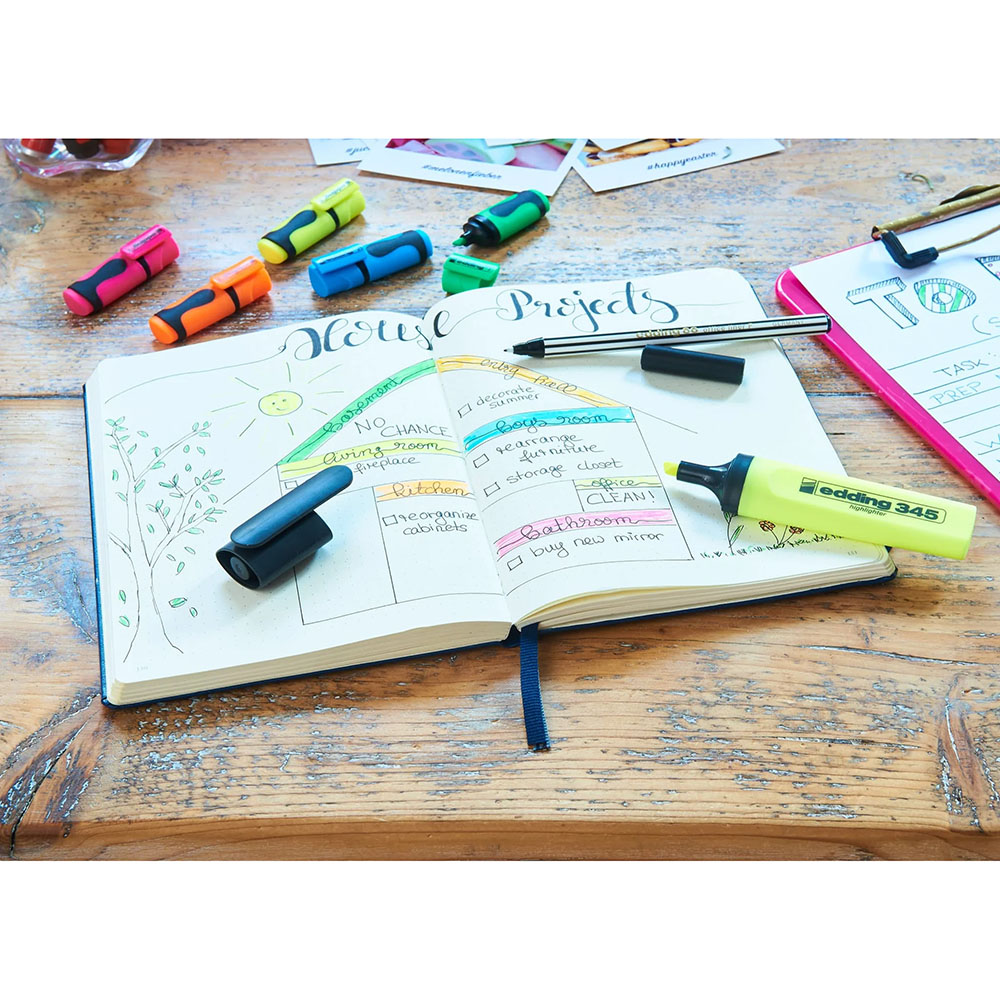 #happyeaster
House Projects
basement
NO
CHANCE
living room
fireplace
kitchen
reorganize
cabinets
decorate
summer
boys room
rearrange
furniture
storage closet
office
CLEAN!
bathroom
buy new mirror
edding 345
highlighter
TO
TASK
PREP